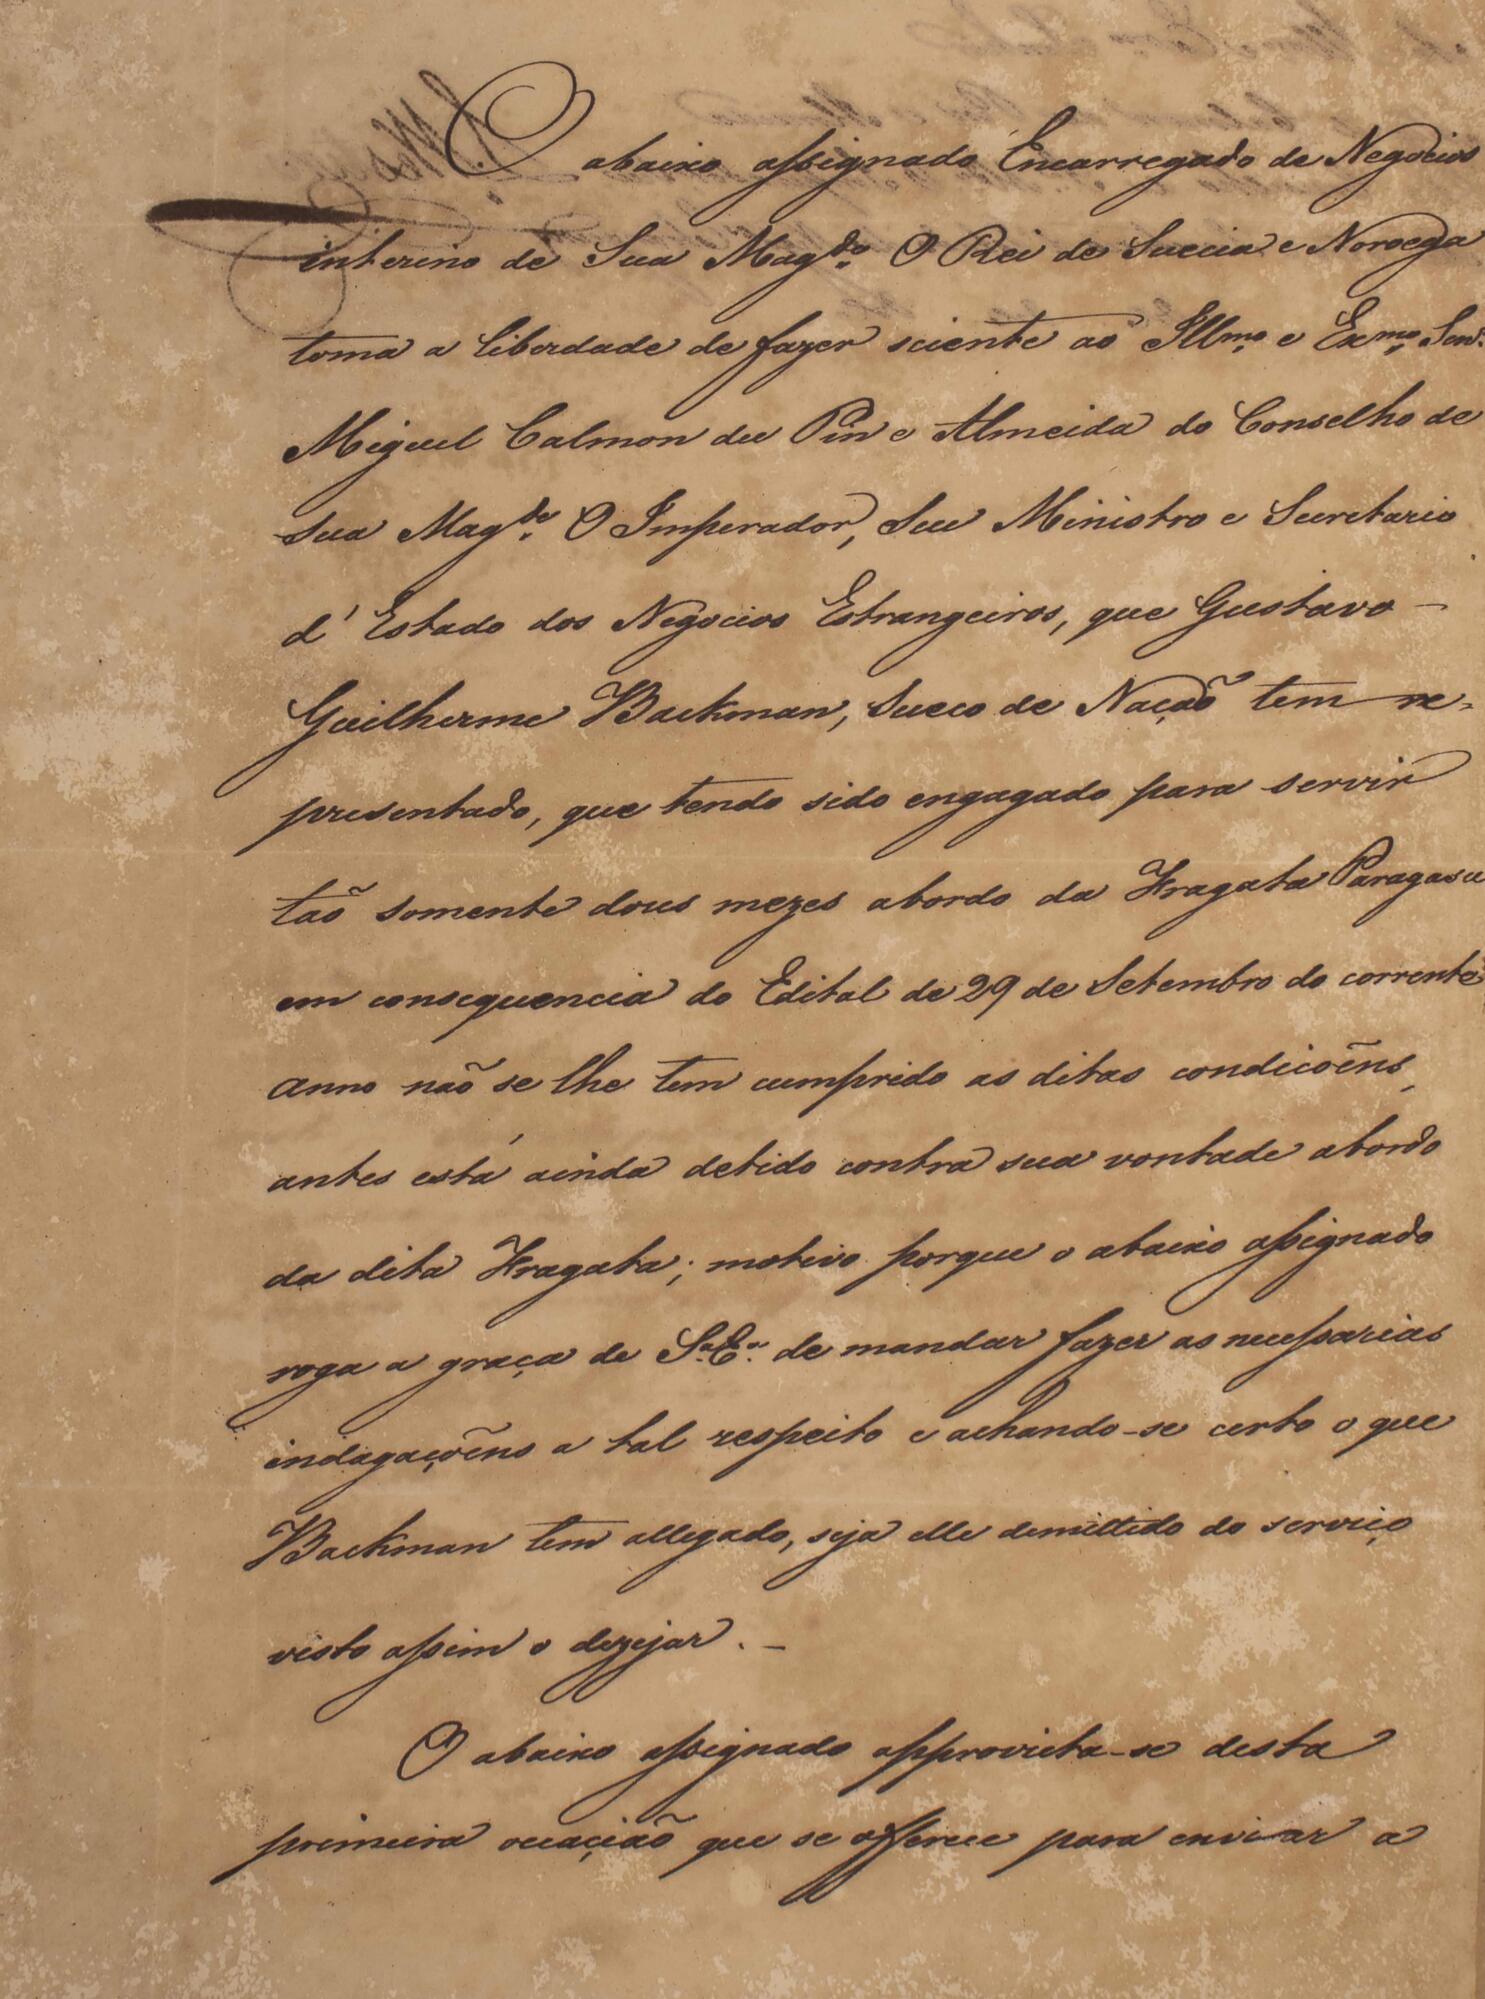 O abaixo assignado Encarregado de Negocios
interino de Sua Mag.de O Rei de Suecia e Noroega
toma a liberdade de fazer sciente ao Illmo. e Exmo. Senr.
Miguel Calmon du Pin e Almeida do Conselho de
Sua Mag.de O Imperador, Seu Ministro e Secretario
d'Estado dos Negocios Estrangeiros, que Gustavo -
Guilherme Backman, Sueco de Nação tem re-
presentado, que tendo sido engagado para servir
tão somente dous mezes abordo da Fragata Paragasu
em consequencia do Edital de 29 de Setembro do corrente
anno não se lhe tem cumprido as ditas condicoẽns,
antes está ainda detido contra sua vontade abordo
da dita Fragata; motivo porque o abaixo assignado
roga a graça de S.a E.a de mandar fazer as necessarias
indagaçoẽns a tal respeito e achando-se certo o que
Backman tem allegado, seja elle demittido do serviço
visto assim o dezejar. -
O abaixo assignado approvieta-se desta
primeira occação que se offerece para enviar a